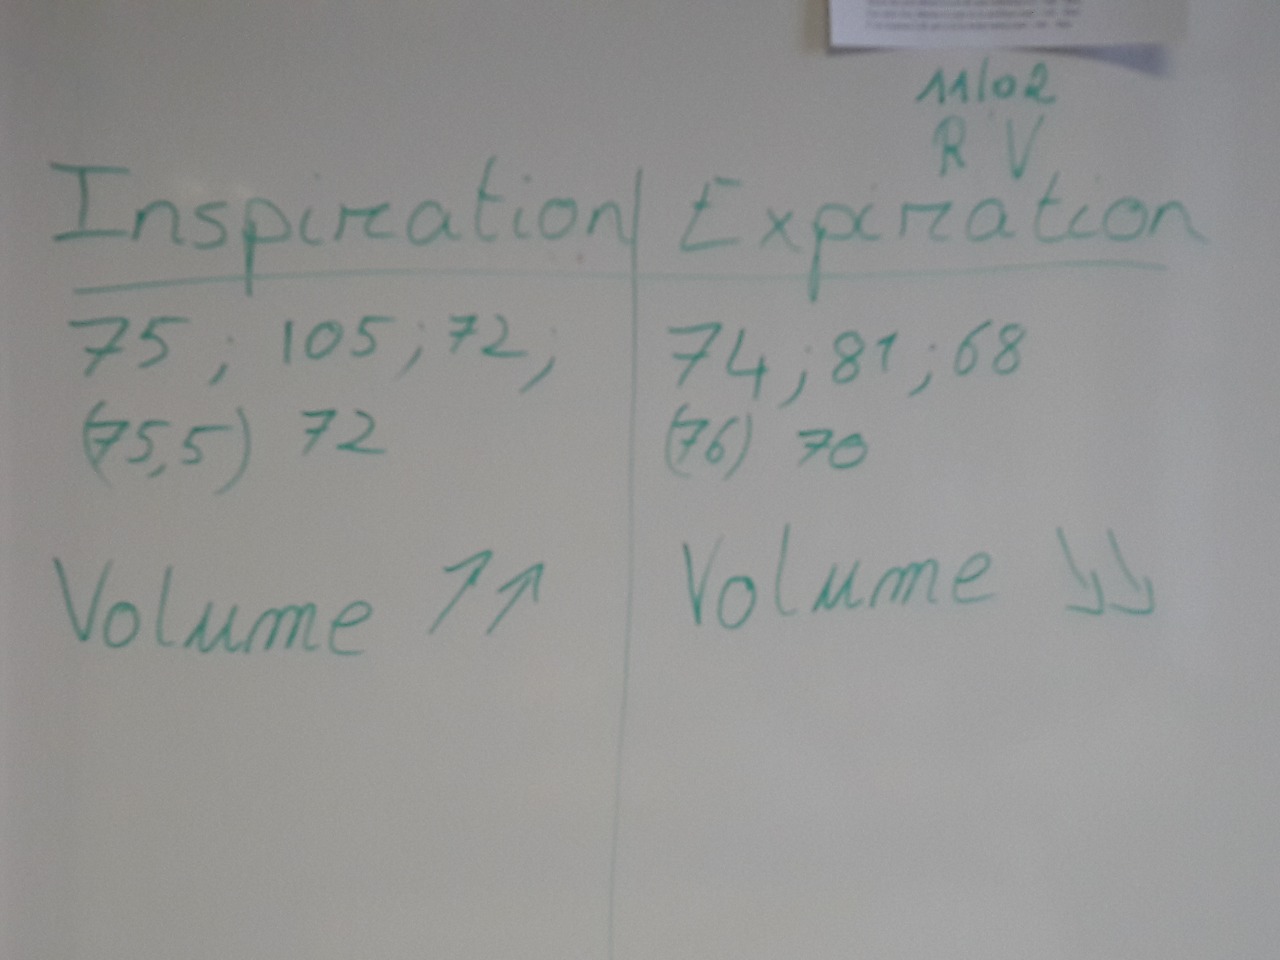 11/02
R V
Inspiration | Expiration
75 ; 105 ; 72 ;
(75,5) 72
Volume ↗↗
74 ; 81 ; 68
(76) 70
Volume ↘↘